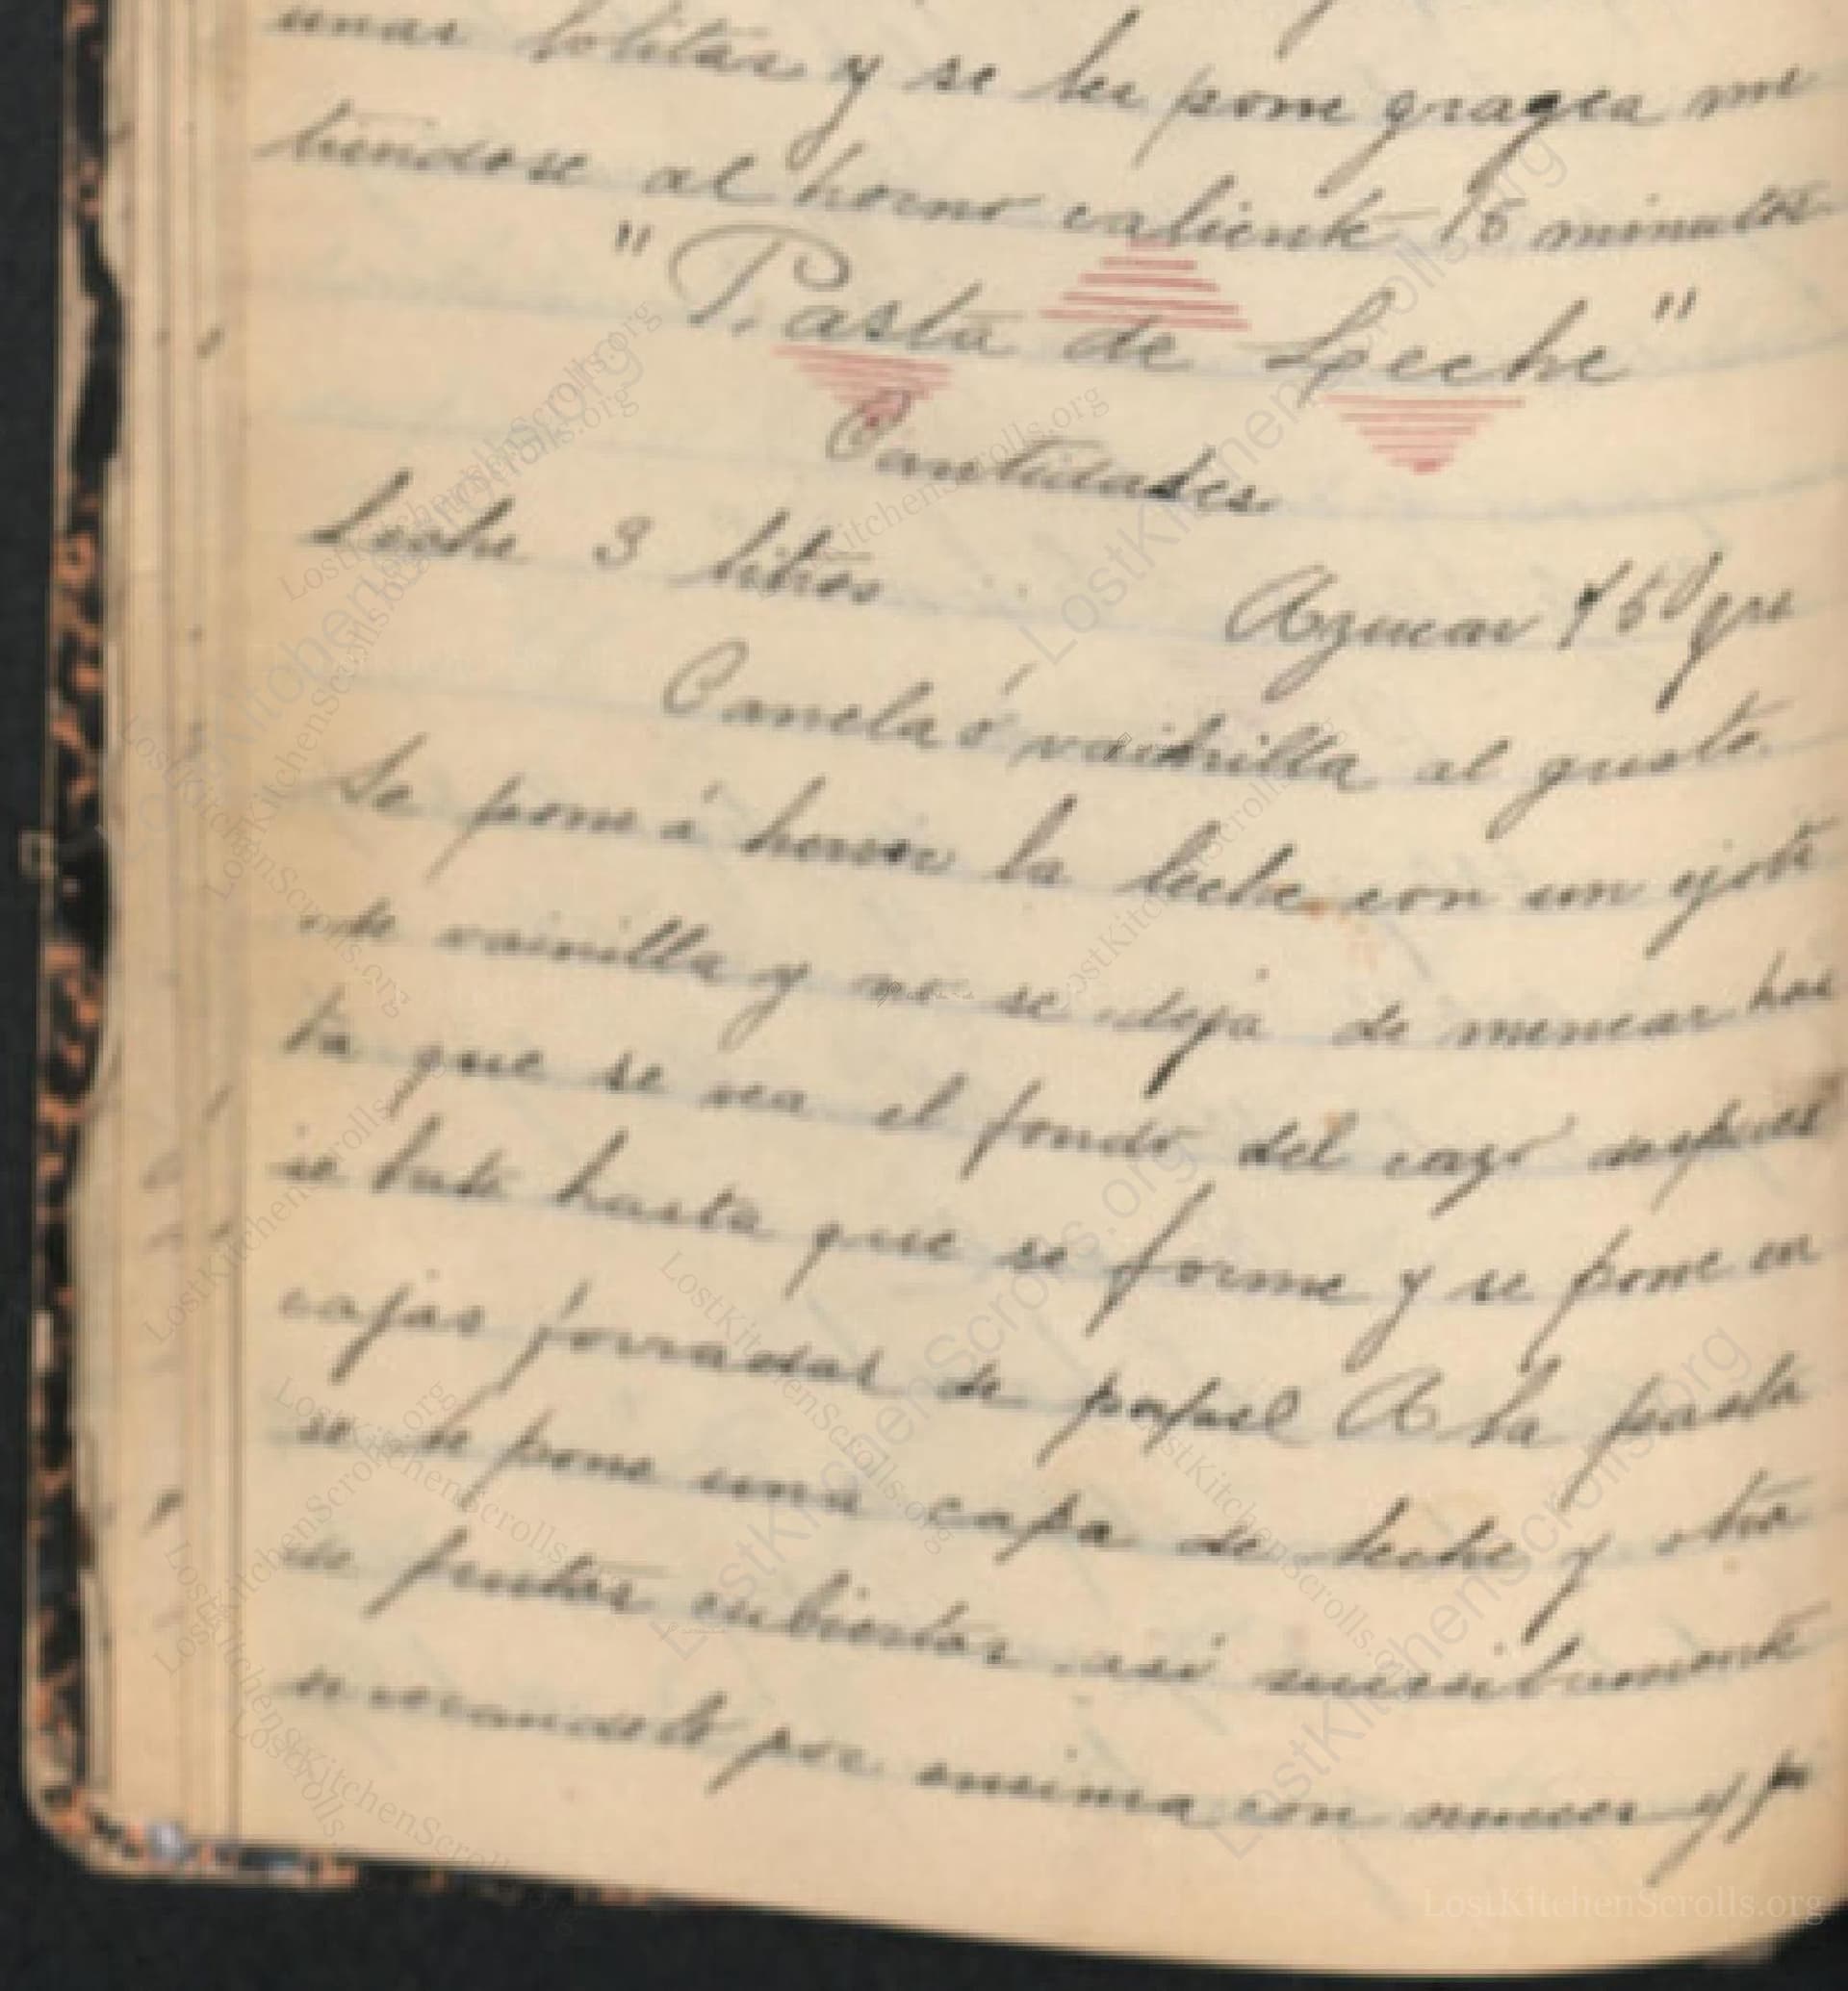 unas bolitas y se les pone gragea me
tiendose al horno caliente 15 minutos
"Pasta de Leche"
Cantidades
Leche 3 litros Azucar 750 grs
Canela ó vainilla al gusto
Se pone á hervir la leche con un ejote
de vainilla y no se deja de menear has
ta que se vea el fondo del cazo despues
se bate hasta que se forme y se pone en
cajas forradas de papel A la pasta
se le pone una capa de leche y otra
de frutas cubiertas asi
por encima con nueces y
LostKitchenScrolls.org